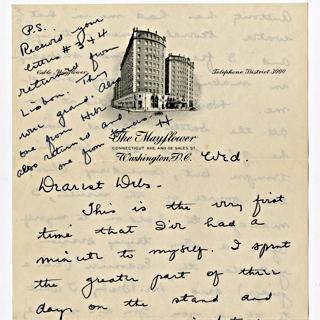 P.S.
Received your
letters # 3 & 4
returned from
Lisbon. They
were grand. Also
one from
also returned and
one from
Cable Mayflower
Telephone District 3000
The Mayflower
CONNECTICUT AVE. AND DE SALES ST.
Washington, D.C. Wed.
Dearest Debs -
This is the very first
time that I've had a
minute to myself. I spent
the greater part of three
days on the stand and